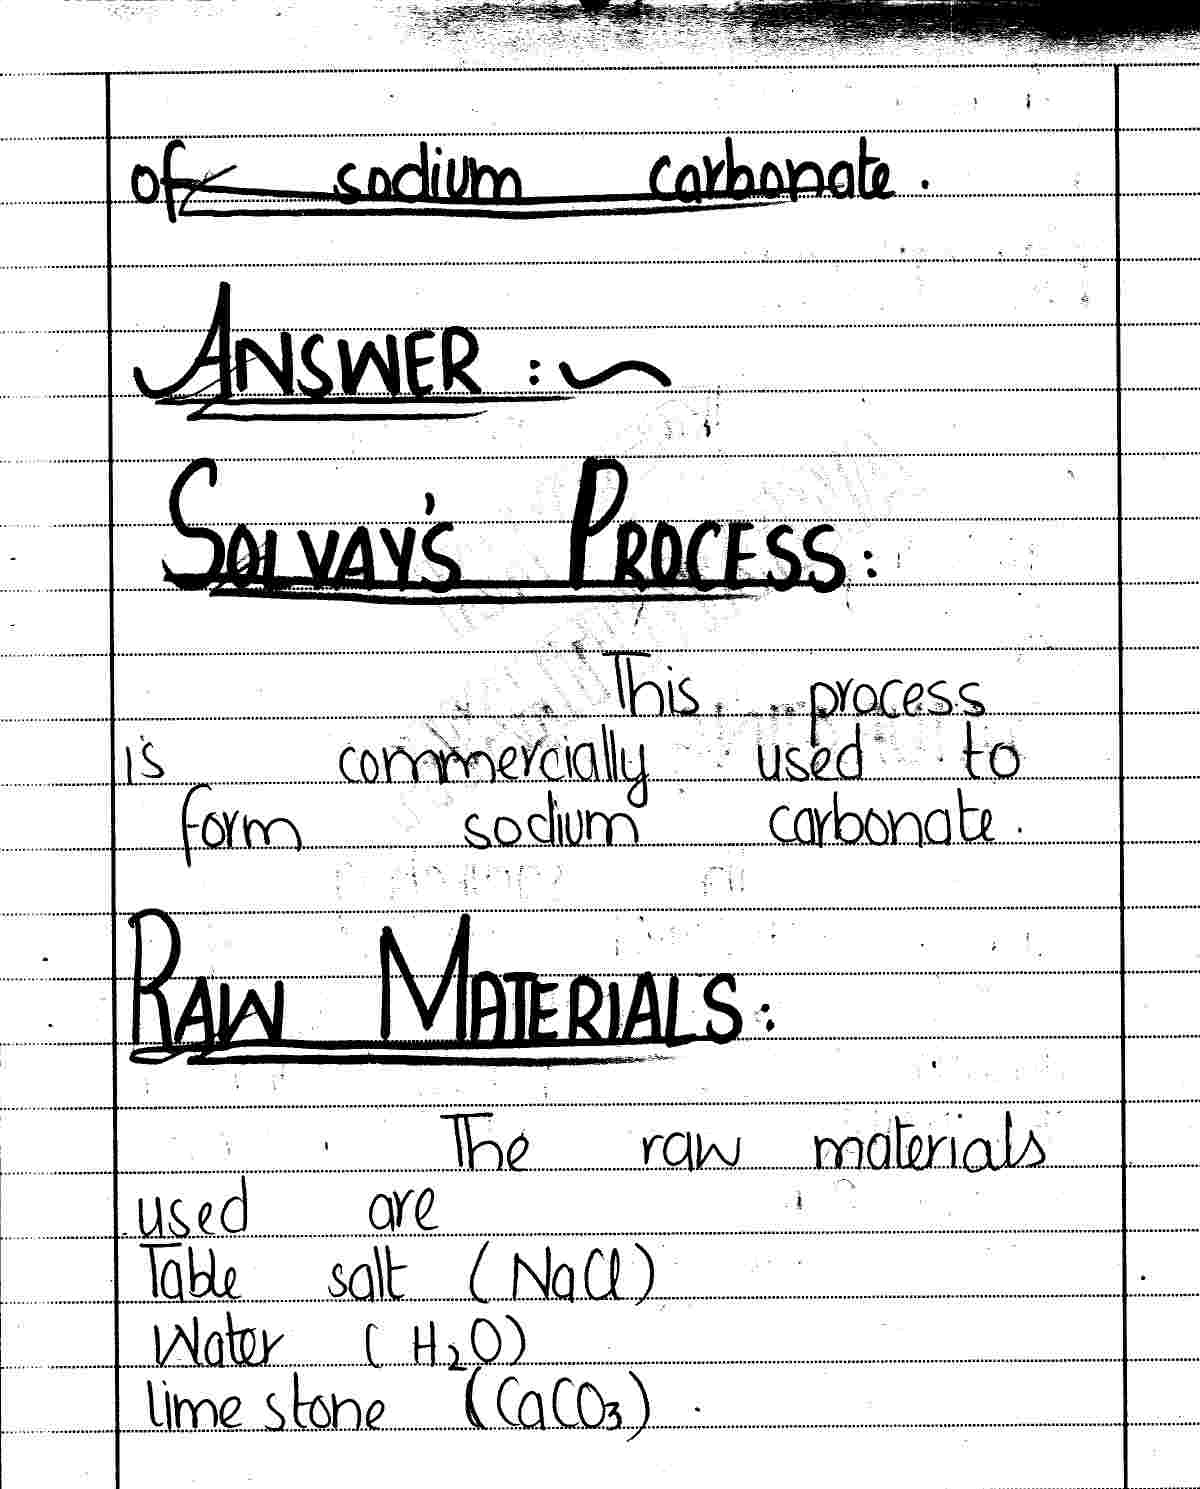 of sodium carbonate.
ANSWER :~
SOLVAY'S PROCESS:
This process
is commercially used to
form sodium carbonate.
RAW MATERIALS:
The raw materials
used are
Table salt (NaCl)
Water (H₂O)
lime stone (CaCO₃).